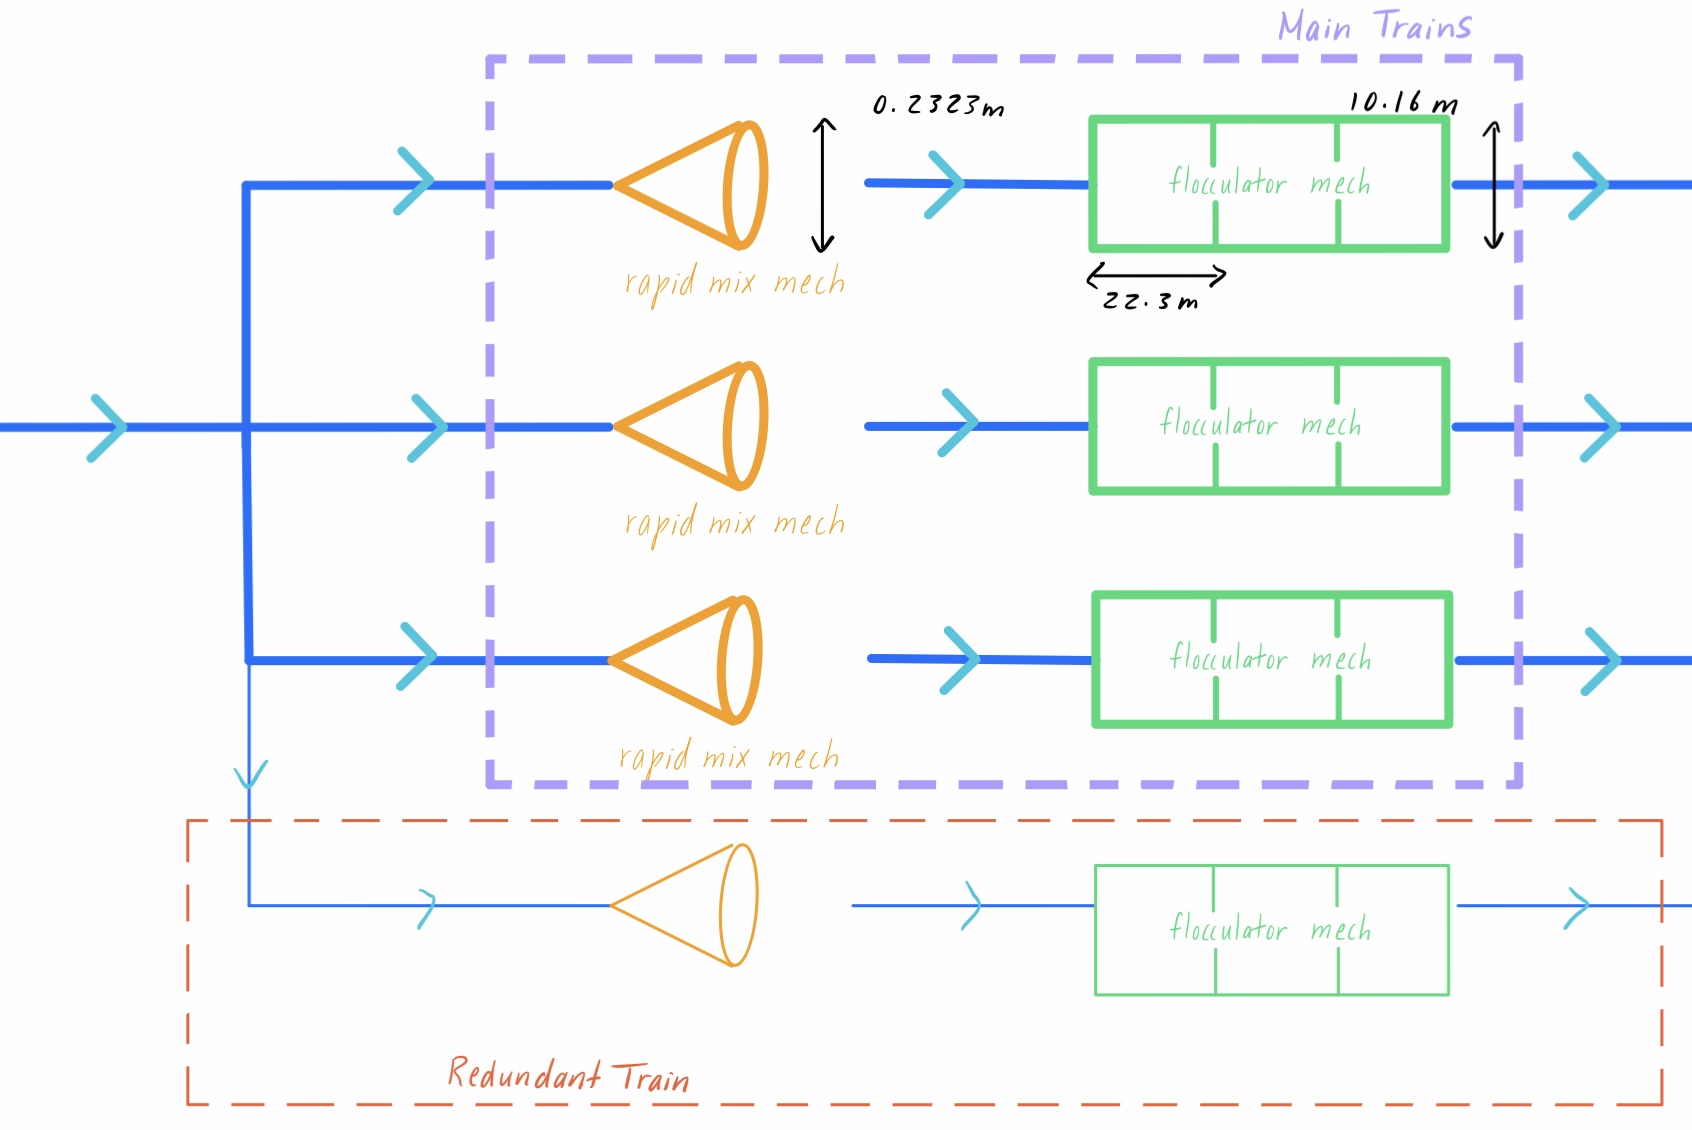 Main Trains
0.2323m
10.16 m
flocculator mech
rapid mix mech
22.3m
flocculator mech
rapid mix mech
flocculator mech
rapid mix mech
flocculator mech
Redundant Train